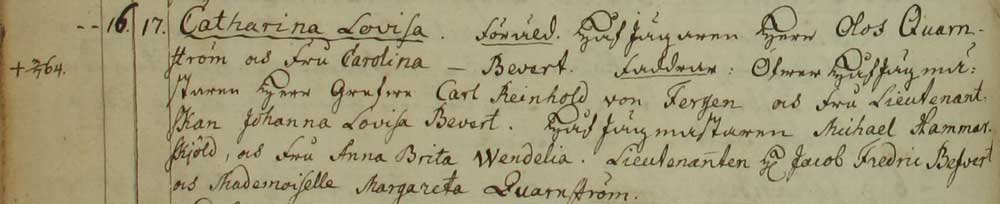 -- 16. 17. Catharina Lovisa. Föräld. Håf Jägaren Herr Olof Quarn-
ström och Fru Carolina – Bevert. Faddrar: Öfwer Håf Jägmä-
+ 2/7 64. staren Herr Grefwe Carl Reinhold von Fersen och Fru Lieutenant-
skan Johanna Lovisa Bevert. Håf Jägmästaren Michael Hammar-
skjöld, och Fru Anna Brita Wendelia. Lieutenanten H Jacob Fredric Befvert
och Mademoiselle Margareta Quarnström.